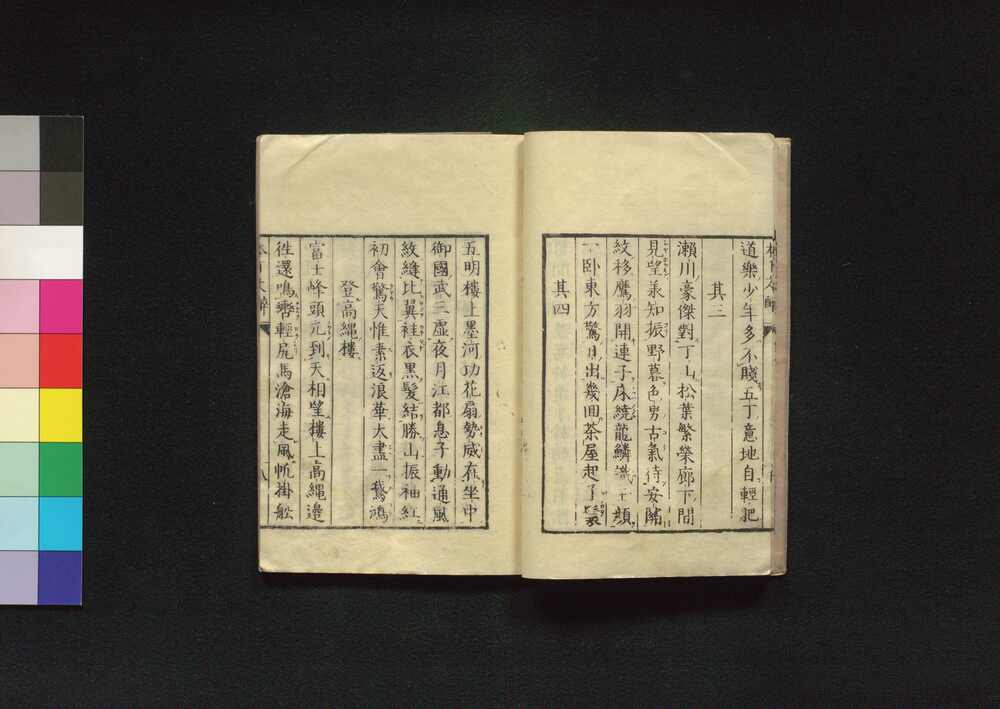 道樂少年多不賤五丁意地自輕肥
其三
瀨川豪傑對丁山松葉繁榮廊下間
見望兼知振野暮色男古氣待安
紋移鷹羽開連子床繞龍鱗識王顏
一臥東方驚日出幾囬茶屋起了
其四
五明樓上墨河功花扇勢威在坐中
御國武三虛夜月江都息子動通風
紋縫比翼袿衣黑髮結勝山振袖紅
初會驚天惟素返浪華大盡一鵞鴻
登高繩樓
富士峰頭元到天相望樓上高繩邊
徃還鳴轡輕尻馬滄海走風帆掛舩